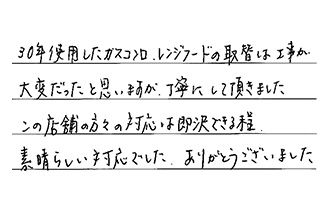 30年使用したガスコンロ.レンジフードの取替は工事が
大変だったと思いますが、丁寧にして頂きました
この店舗の方々の対応は即決できる程.
素晴らしい対応でした.ありがとうございました